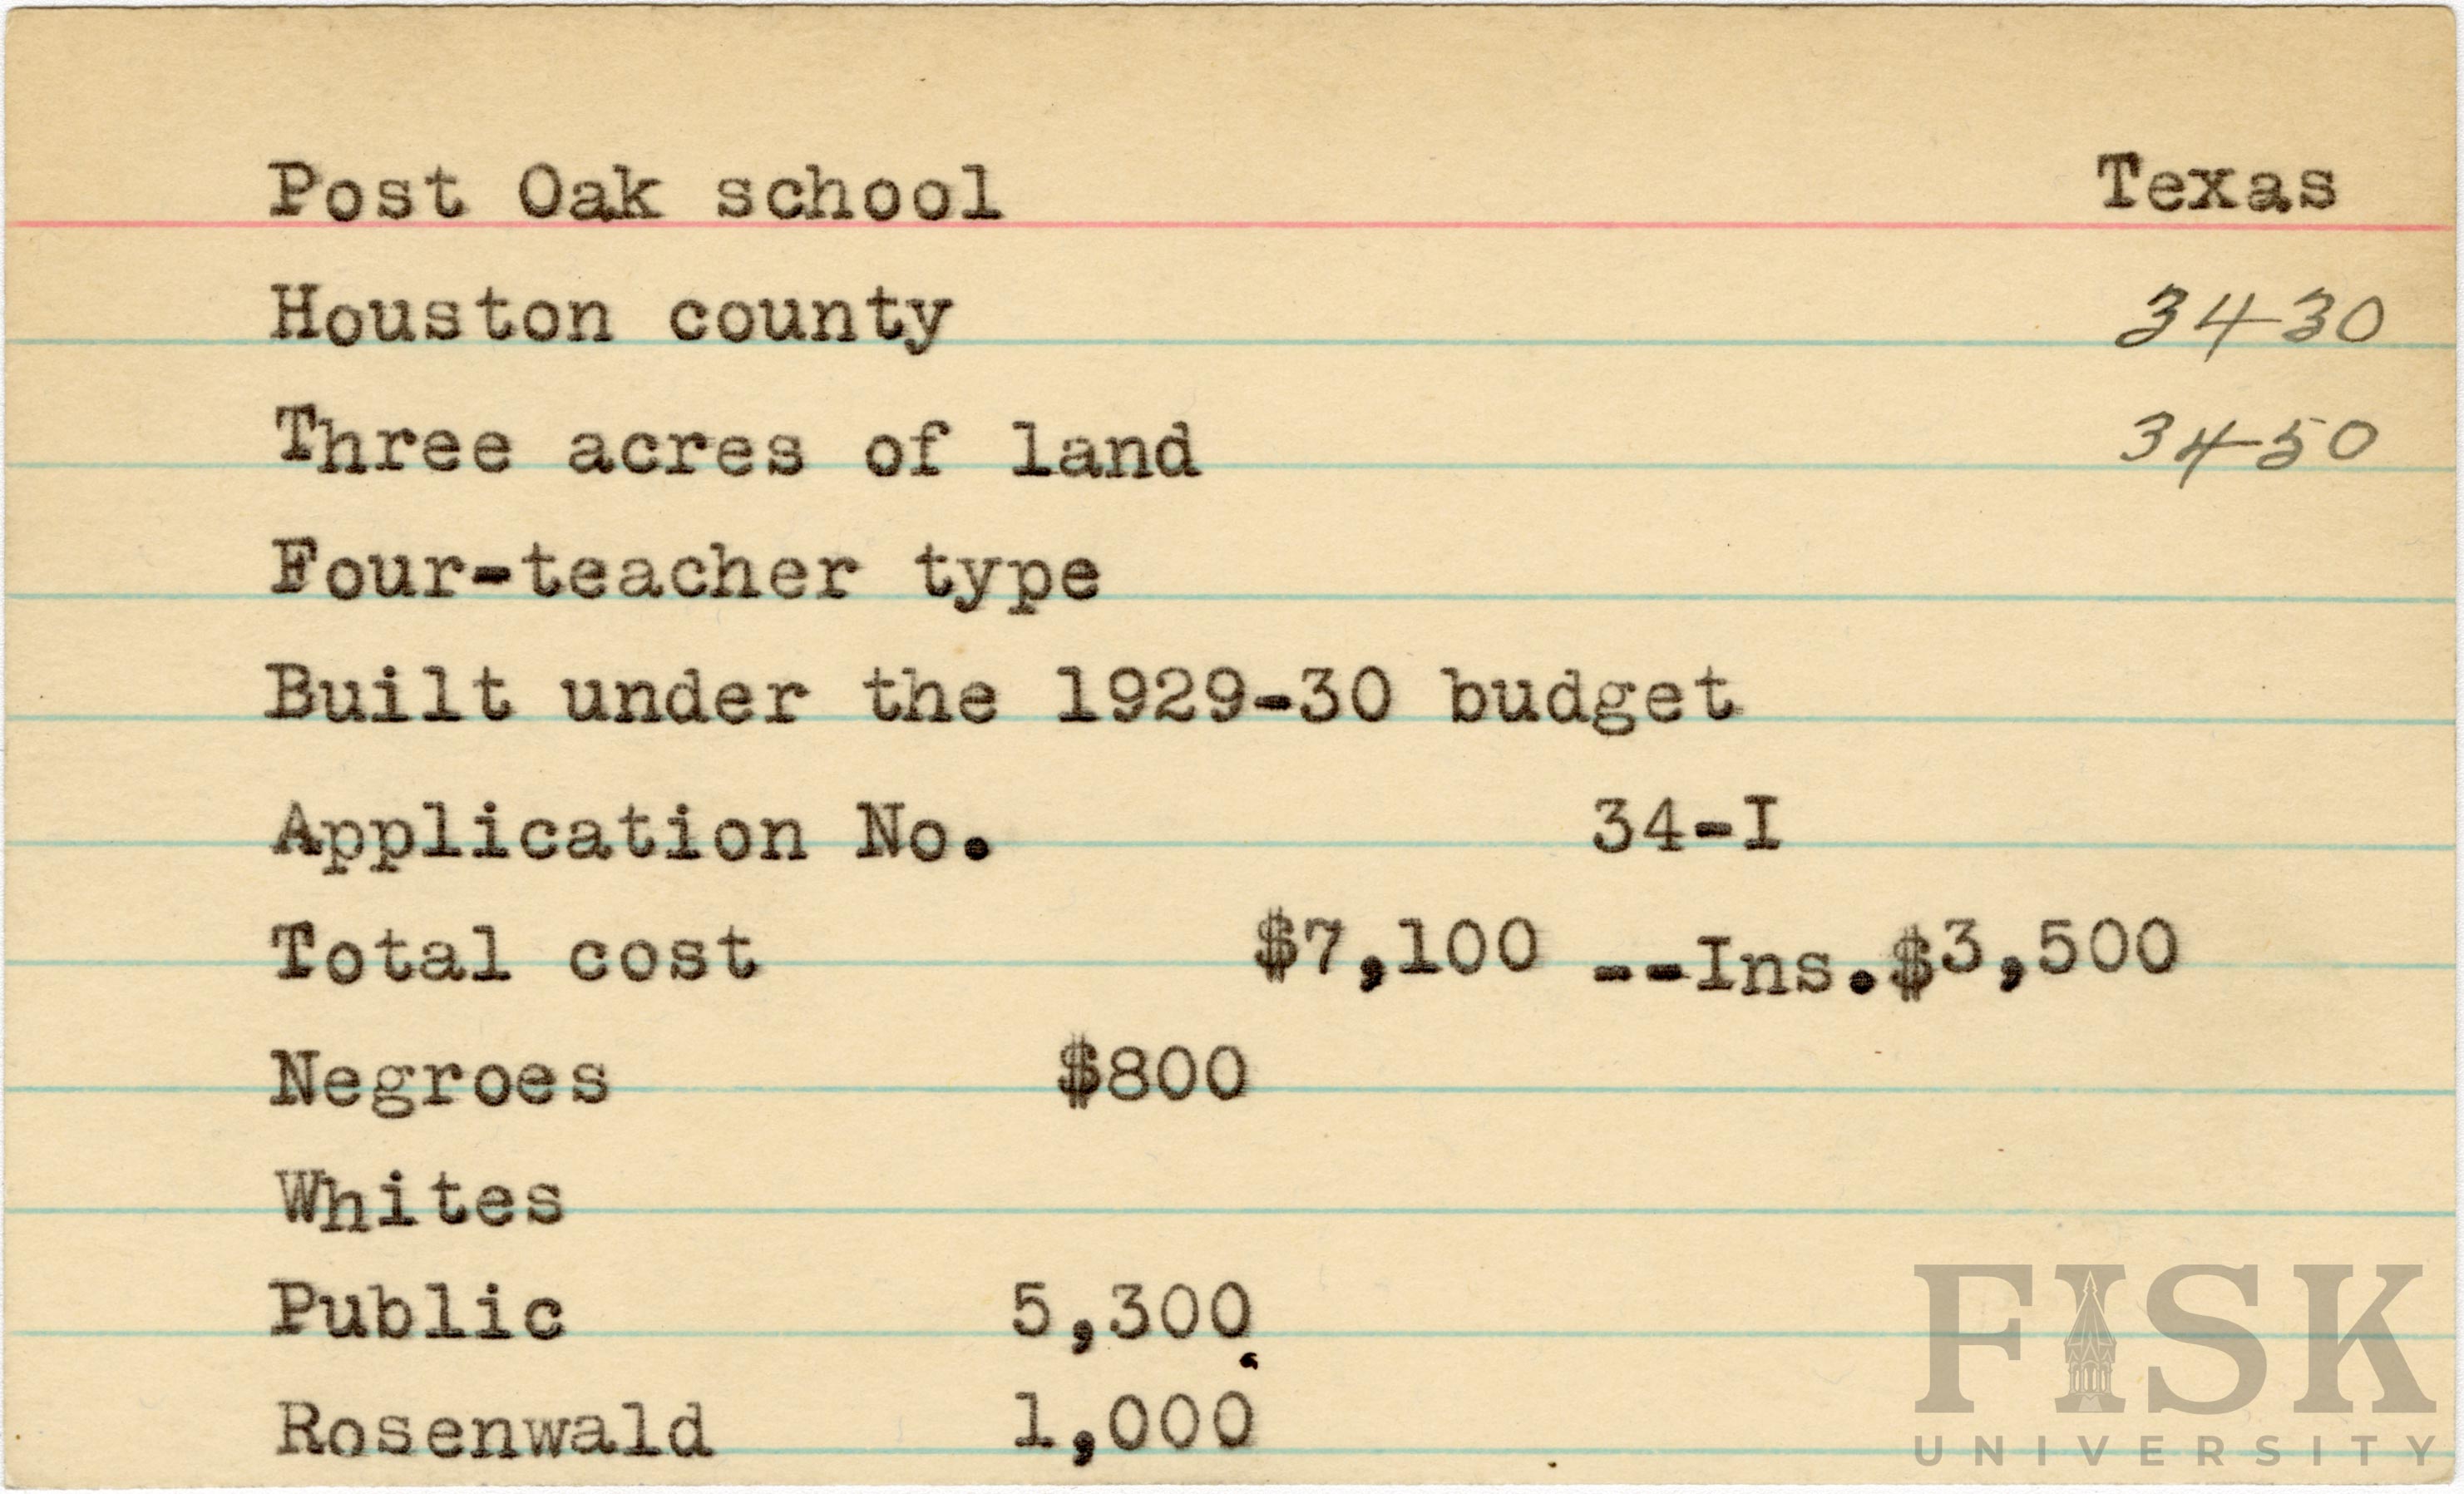 Post Oak school Texas
Houston county 3430
Three acres of land 3450
Four-teacher type
Built under the 1929-30 budget
Application No. 34-I
Total cost $7,100 --Ins.$3,500
Negroes $800
Whites
Public 5,300
Rosenwald 1,000
FISK
UNIVERSITY